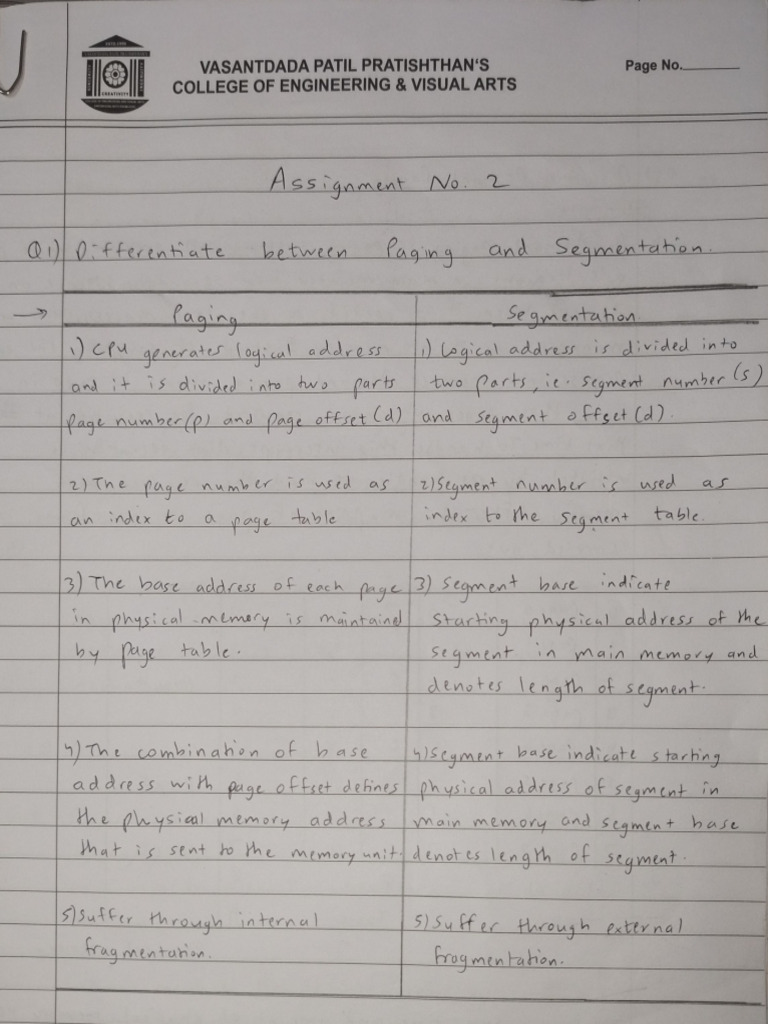 VASANTDADA PATIL PRATISHTHAN'S
COLLEGE OF ENGINEERING & VISUAL ARTS
Page No.
Assignment No. 2
Q1) Differentiate between Paging and Segmentation.
→ Paging
1) CPU generates logical address
and it is divided into two parts
page number(p) and page offset(d)
2) The page number is used as
an index to a page table
3) The base address of each page
in physical memory is maintained
by page table.
4) The combination of base
address with page offset defines
the physical memory address
that is sent to the memory unit.
5) Suffer through internal
fragmentation.
Segmentation
1) Logical address is divided into
two parts, ie. segment number(s)
and segment offset(d).
2) Segment number is used as
index to the segment table.
3) Segment base indicate
starting physical address of the
segment in main memory and
denotes length of segment.
4) Segment base indicate starting
physical address of segment in
main memory and segment base
denotes length of segment.
5) Suffer through external
frogmentation.